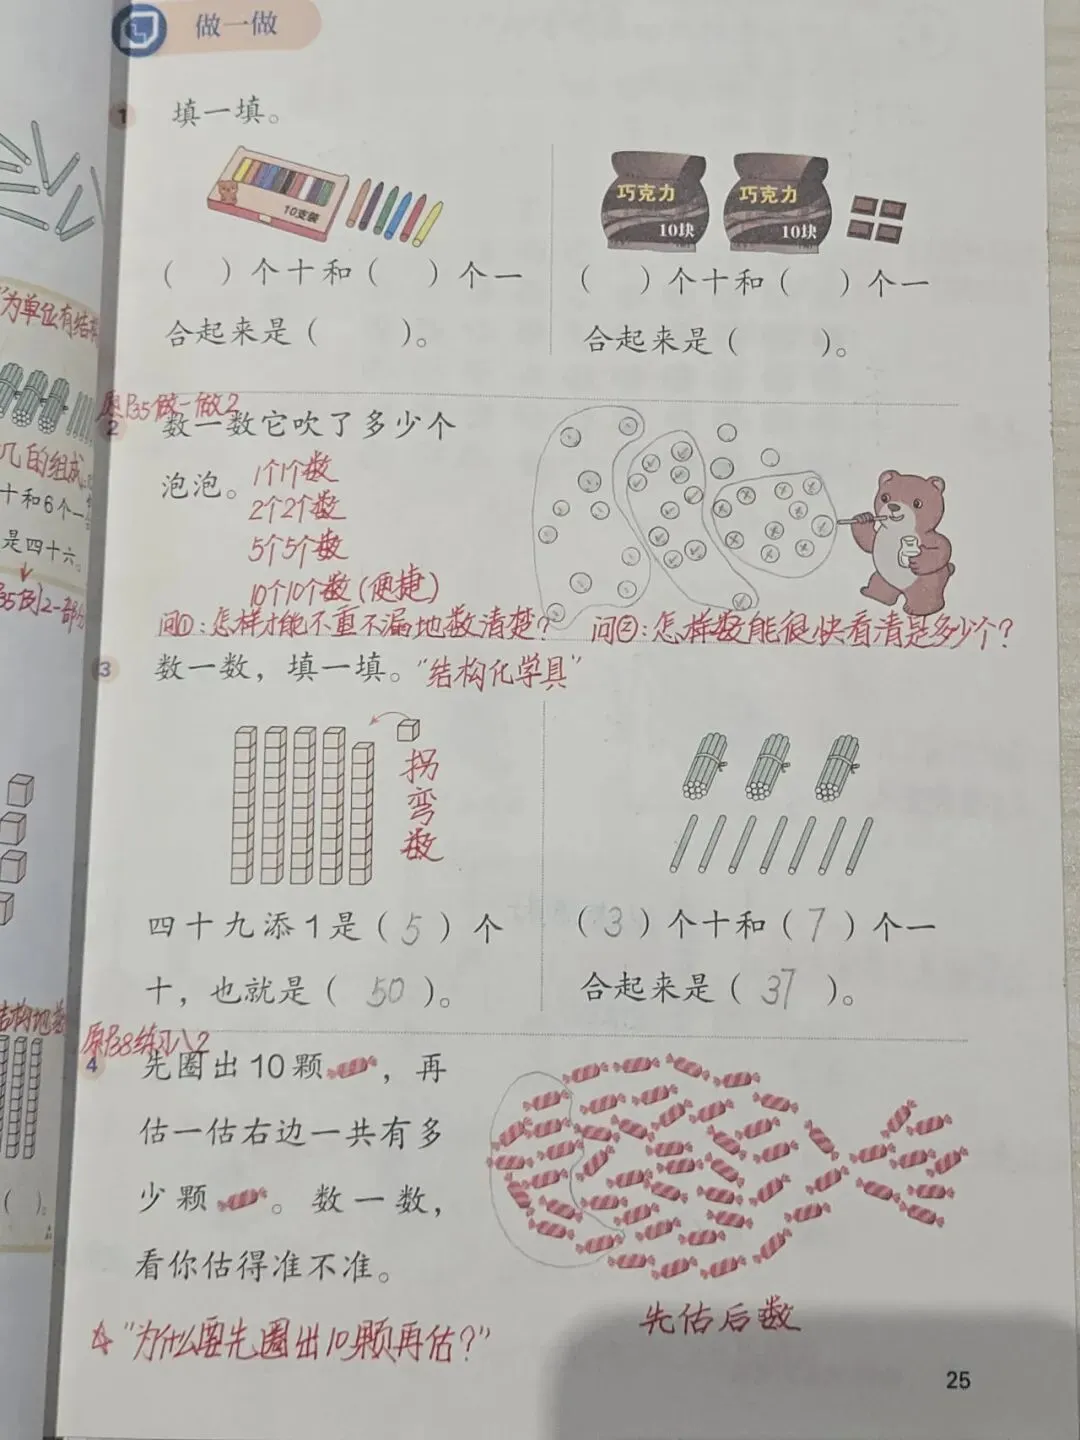 做一做
1 填一填。
10支装
巧克力 10块
巧克力 10块
( )个十和( )个一
合起来是( )。
( )个十和( )个一
合起来是( )。
原P35做一做2
2 数一数它吹了多少个
泡泡。
1个1个数
2个2个数
5个5个数
10个10个数(便捷)
问①:怎样才能不重不漏地数清楚?
问②:怎样数能很快看清是多少个?
3 数一数，填一填。"结构化学具"
拐弯数
四十九添1是( 5 )个
十，也就是( 50 )。
( 3 )个十和( 7 )个一
合起来是( 37 )。
原P38练习八2
4 先圈出10颗 ，再
估一估右边一共有多
少颗 。数一数，
看你估得准不准。
先估后数
☆"为什么要先圈出10颗再估?"
25
"为单位有结
几的组成
十和6个一
是四十六。
( )。